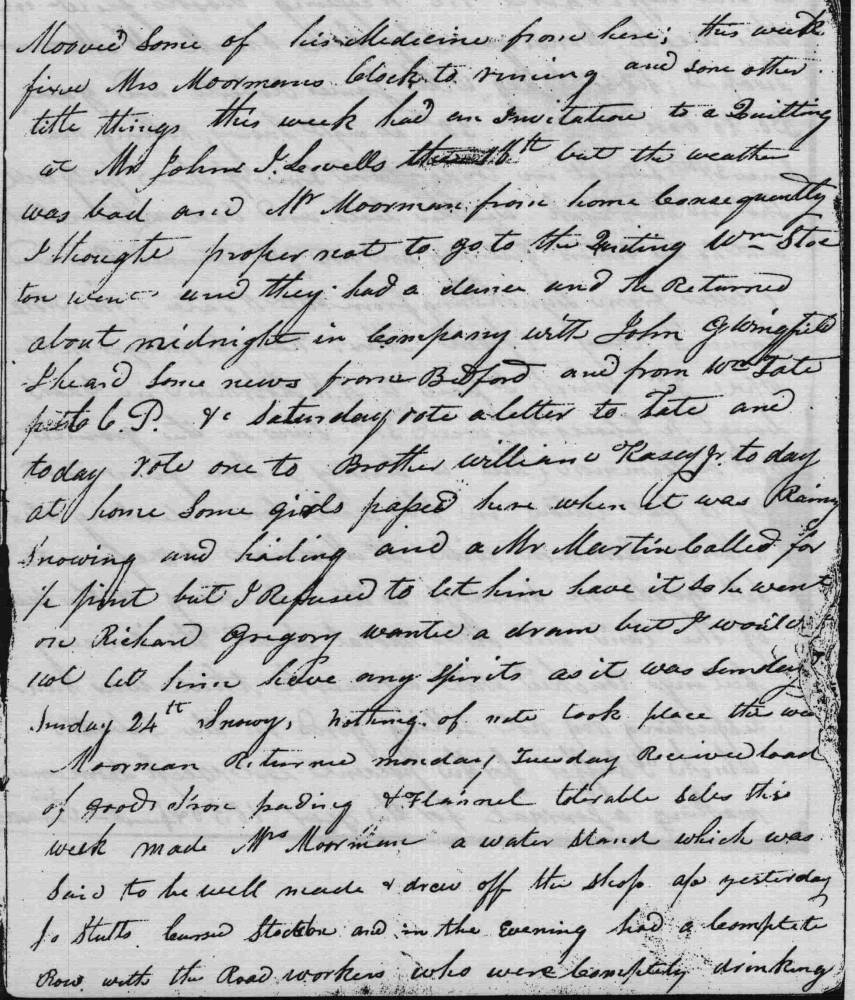 Mooved Some of his Medicine from here; this week
fixed Mrs Moormans Clock to runing and some other
little things this week had an Invitation to a Quilting
at Mr John I. Lewells the 16th but the weather
was bad and Mr Moorman from home Consequently
I thought proper not to go to the Quilting Wm Stoc
ton went and they had a dance and he Returned
about midnight in Company with John G Wingfield
I heard Some news from Bedford and from Wm Tate
to C. P. &c Saturday rote a letter to Tate and
today rote one to Brother William Kasey Jr. to day
at home Some girls passed here when it was Rainy
Snowing and hailing and a Mr Martin Called for
½ pint but I Refused to let him have it So he went
on Richard Gregory wanted a dram but I would
not let him have any Spirits as it was Sunday
Sunday 24th Snowy, Nothing of note took place the we
Moorman Returned monday, Tuesday Received load
of goods Iron pading & Flannel tolerable Sales this
week made Mrs Moorman a water Stand which was
Said to be well made & drew off the Shop a/c yesterday
Jo Stults Cursed Stockton and in the Evening had a Complete
Row with the Road workers who were Completely drinking